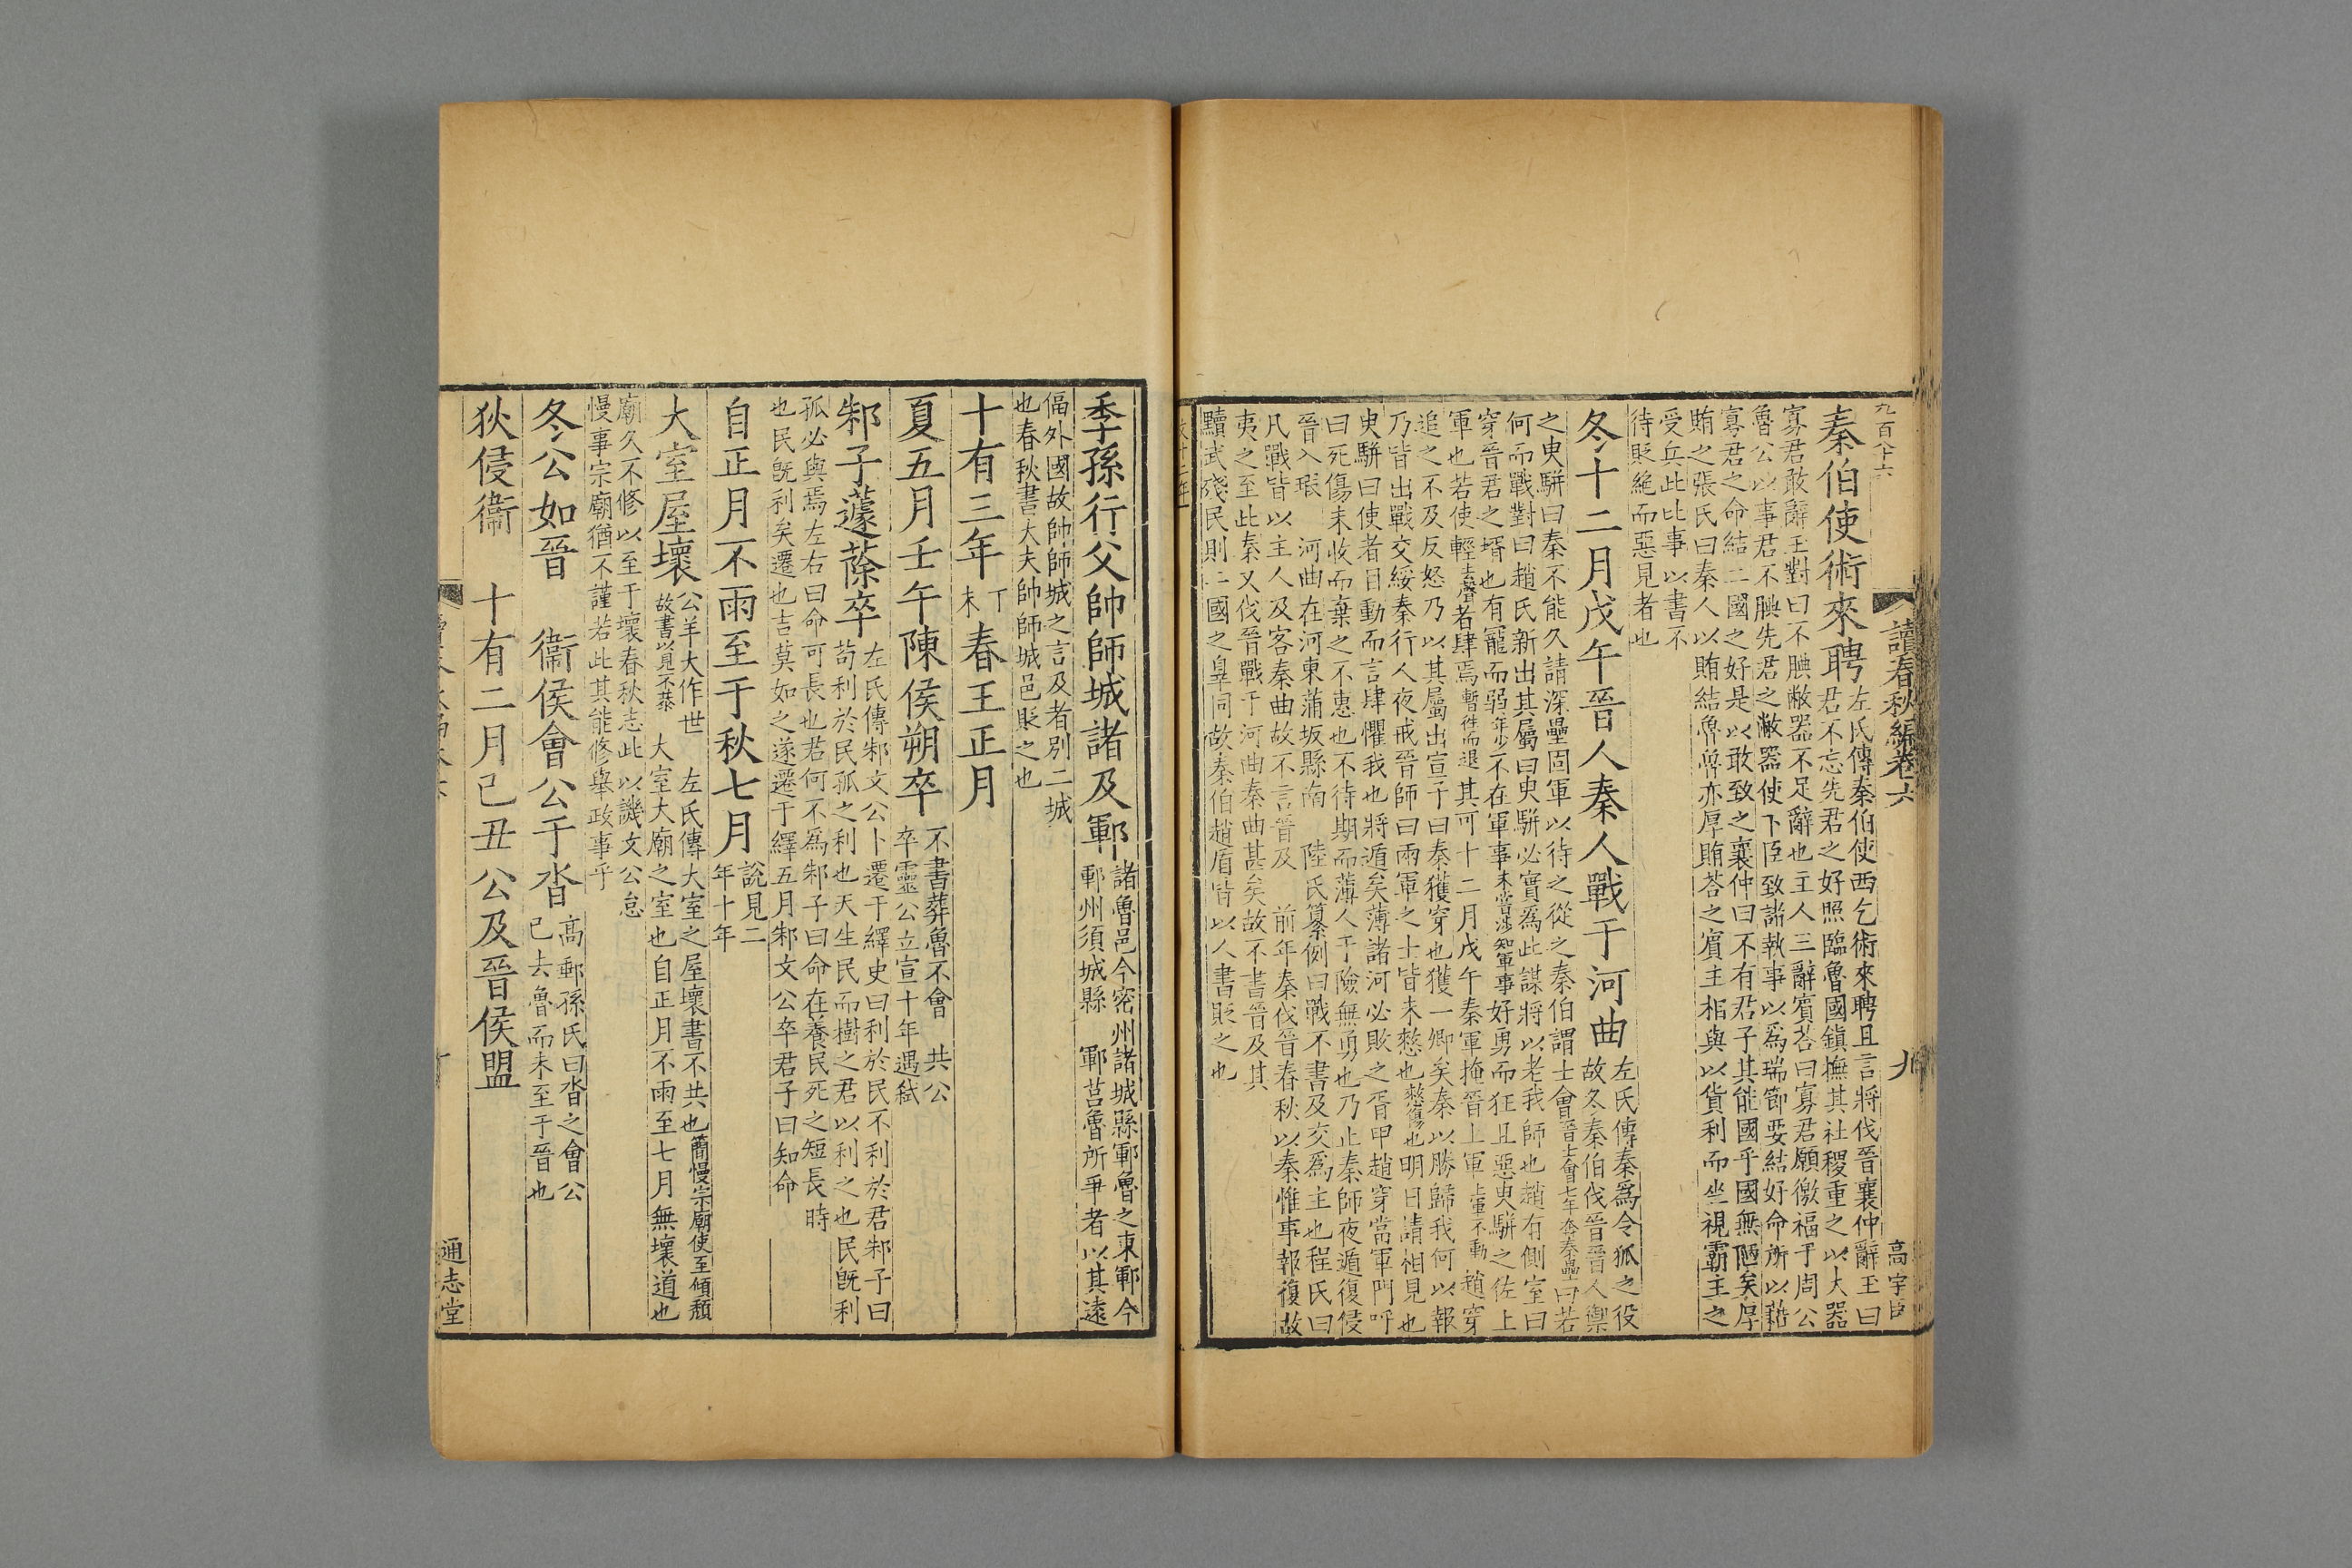 九百八十六
讀春秋編卷六
九
高宇臣
秦伯使術來聘左氏傳秦伯使西乞術來聘且言將伐晉襄仲辭玉曰
君不忘先君之好照臨魯國鎮撫其社稷重之以大器
寡君敢辭玉對曰不腆敝器不足辭也主人三辭賓荅曰寡君願徼福于周公
魯公以事君不腆先君之敝器使下臣致諸執事以爲瑞節要結好命所以藉
寡君之命結二國之好是以敢致之襄仲曰不有君子其能國乎國無陋矣厚
賄之張氏曰秦人以賄結魯魯亦厚賄荅之賓主相與以貨利而坐視霸主之
受兵此比事以書不
待貶絶而惡見者也
冬十二月戊午晉人秦人戰于河曲左氏傳秦爲令狐之役
故冬秦伯伐晉晉人禦
之臾駢曰秦不能久請深壘固軍以待之從之秦伯謂士會晉士會七年奔秦壘曰若
何而戰對曰趙氏新出其屬曰臾駢必實爲此謀將以老我師也趙有側室曰
穿晉君之壻也有寵而弱年少不在軍事未嘗涉知軍事好勇而狂且惡臾駢之佐上
軍也若使輕去聲者肆焉暫徃而退其可十二月戊午秦軍掩晉上軍上軍不動趙穿
追之不及反怒乃以其屬出宣子曰秦獲穿也獲一卿矣秦以勝歸我何以報
乃皆出戰交綏秦行人夜戒晉師曰兩軍之士皆未憖也憖傷也明日請相見也
臾駢曰使者目動而言肆懼我也將遁矣薄諸河必敗之胥甲趙穿當軍門呼
曰死傷未收而棄之不惠也不待期而薄人于險無勇也乃止秦師夜遁復侵
晉入瑕　河曲在河東蒲坂縣南　陸氏纂例曰戰不書及交爲主也程氏曰
凡戰皆以主人及客秦曲故不言晉及　前年秦伐晉春秋以秦惟事報復故
夷之至此秦又伐晉戰于河曲秦曲甚矣故不書晉及其
黷武殘民則二國之辠同故秦伯趙盾皆以人書貶之也
季孫行父帥師城諸及鄆諸魯邑今密州諸城縣鄆魯之東鄆今
鄆州須城縣　鄆莒魯所爭者以其遠
偪外國故帥師城之言及者别二城
也春秋書大夫帥師城邑貶之也
十有三年丁未春王正月
夏五月壬午陳侯朔卒不書葬魯不會　共公
卒靈公立宣十年遇弑
邾子蘧蒢卒左氏傳邾文公卜遷于繹史曰利於民不利於君邾子曰
苟利於民孤之利也天生民而樹之君以利之也民旣利
孤必與焉左右曰命可長也君何不爲邾子曰命在養民死之短長時
也民旣利矣遷也吉莫如之遂遷于繹五月邾文公卒君子曰知命
自正月不雨至于秋七月說見二
年十年
大室屋壞公羊大作世　左氏傳大室之屋壞書不共也簡慢宗廟使至傾頽
故書以見不恭　大室大廟之室也自正月不雨至七月無壞道也
廟久不修以至于壞春秋志此以譏文公怠
慢事宗廟猶不謹若此其能修舉政事乎
冬公如晉　衞侯會公于沓髙郵孫氏曰沓之會公
已去魯而未至于晉也
狄侵衞　十有二月己丑公及晉侯盟
通志堂